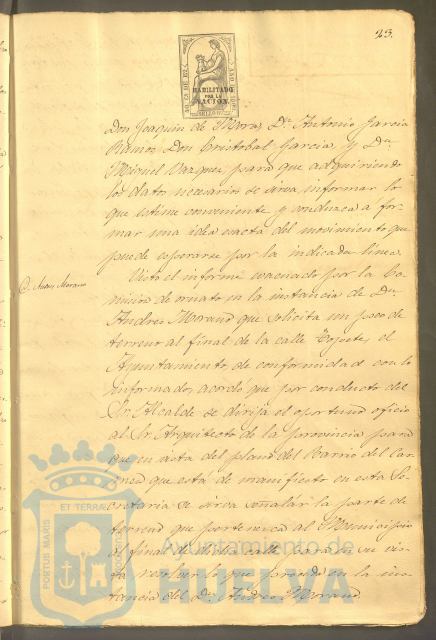 23.
HABILITADO
POR LA
NACION.
Don Joaquin de Mora, Dn. Antonio Garcia
Ramos Don Cristobal Garcia, y Dn.
Miguel Vazquez para que adquiriendo
los datos necesarios se sirva informar lo
que estime conveniente y conduzca a for-
mar una idea exacta del movimiento que
puede esperarse por la indicada linea.
Visto el informe evacuado por la Co-
mision de ornato en la instancia de Dn.
Andres Morano que solicita un poco de
terreno al final de la calle el
Ayuntamiento de conformidad con lo
informado, acordó que por conducto del
Sr. Alcalde se dirija el oportuno oficio
al Sr. Arquitecto de la provincia para
que en vista del plano del Barrio del Car-
men que está de manifiesto en esta Se-
cretaria se sirva señalar la parte de
terreno que pertenezca al Municipio
al final de dicha calle para en su vis-
ta resolver lo que proceda en la ins-
tancia del Dn. Andres Morano
D. Morano
PORTUS MARIS
ET TERRAE
Ayuntamiento de
HUELVA